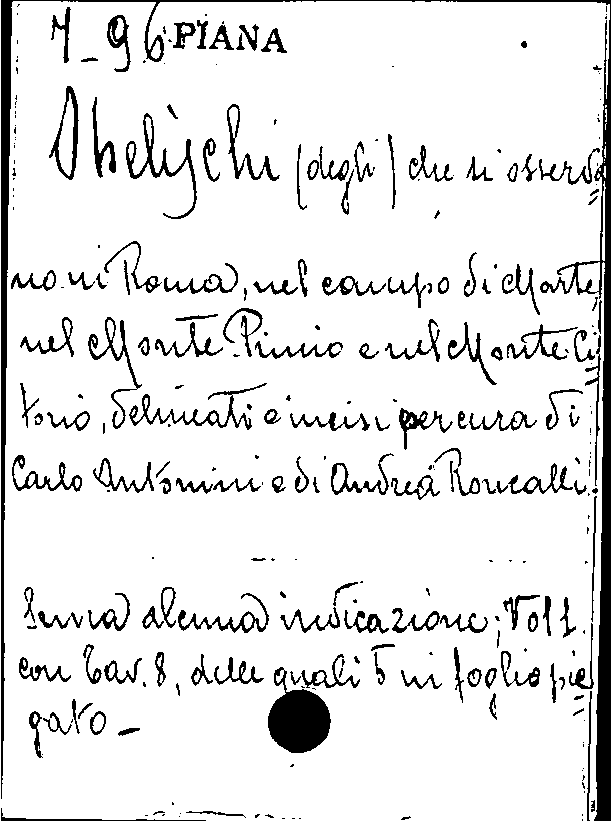 7-96 PIANA
Obelischi (degli) che si osserva=
no in Roma, nel campo di Marte,
nel Monte Pincio e nel Monte Ci=
torio, delineati e incisi per cura di
Carlo Antonini e di Andrea Roncalli.
Senza alcuna indicazione; Vol 1.
con Tav. 8, delle quali 5 in foglio pie=
gato -